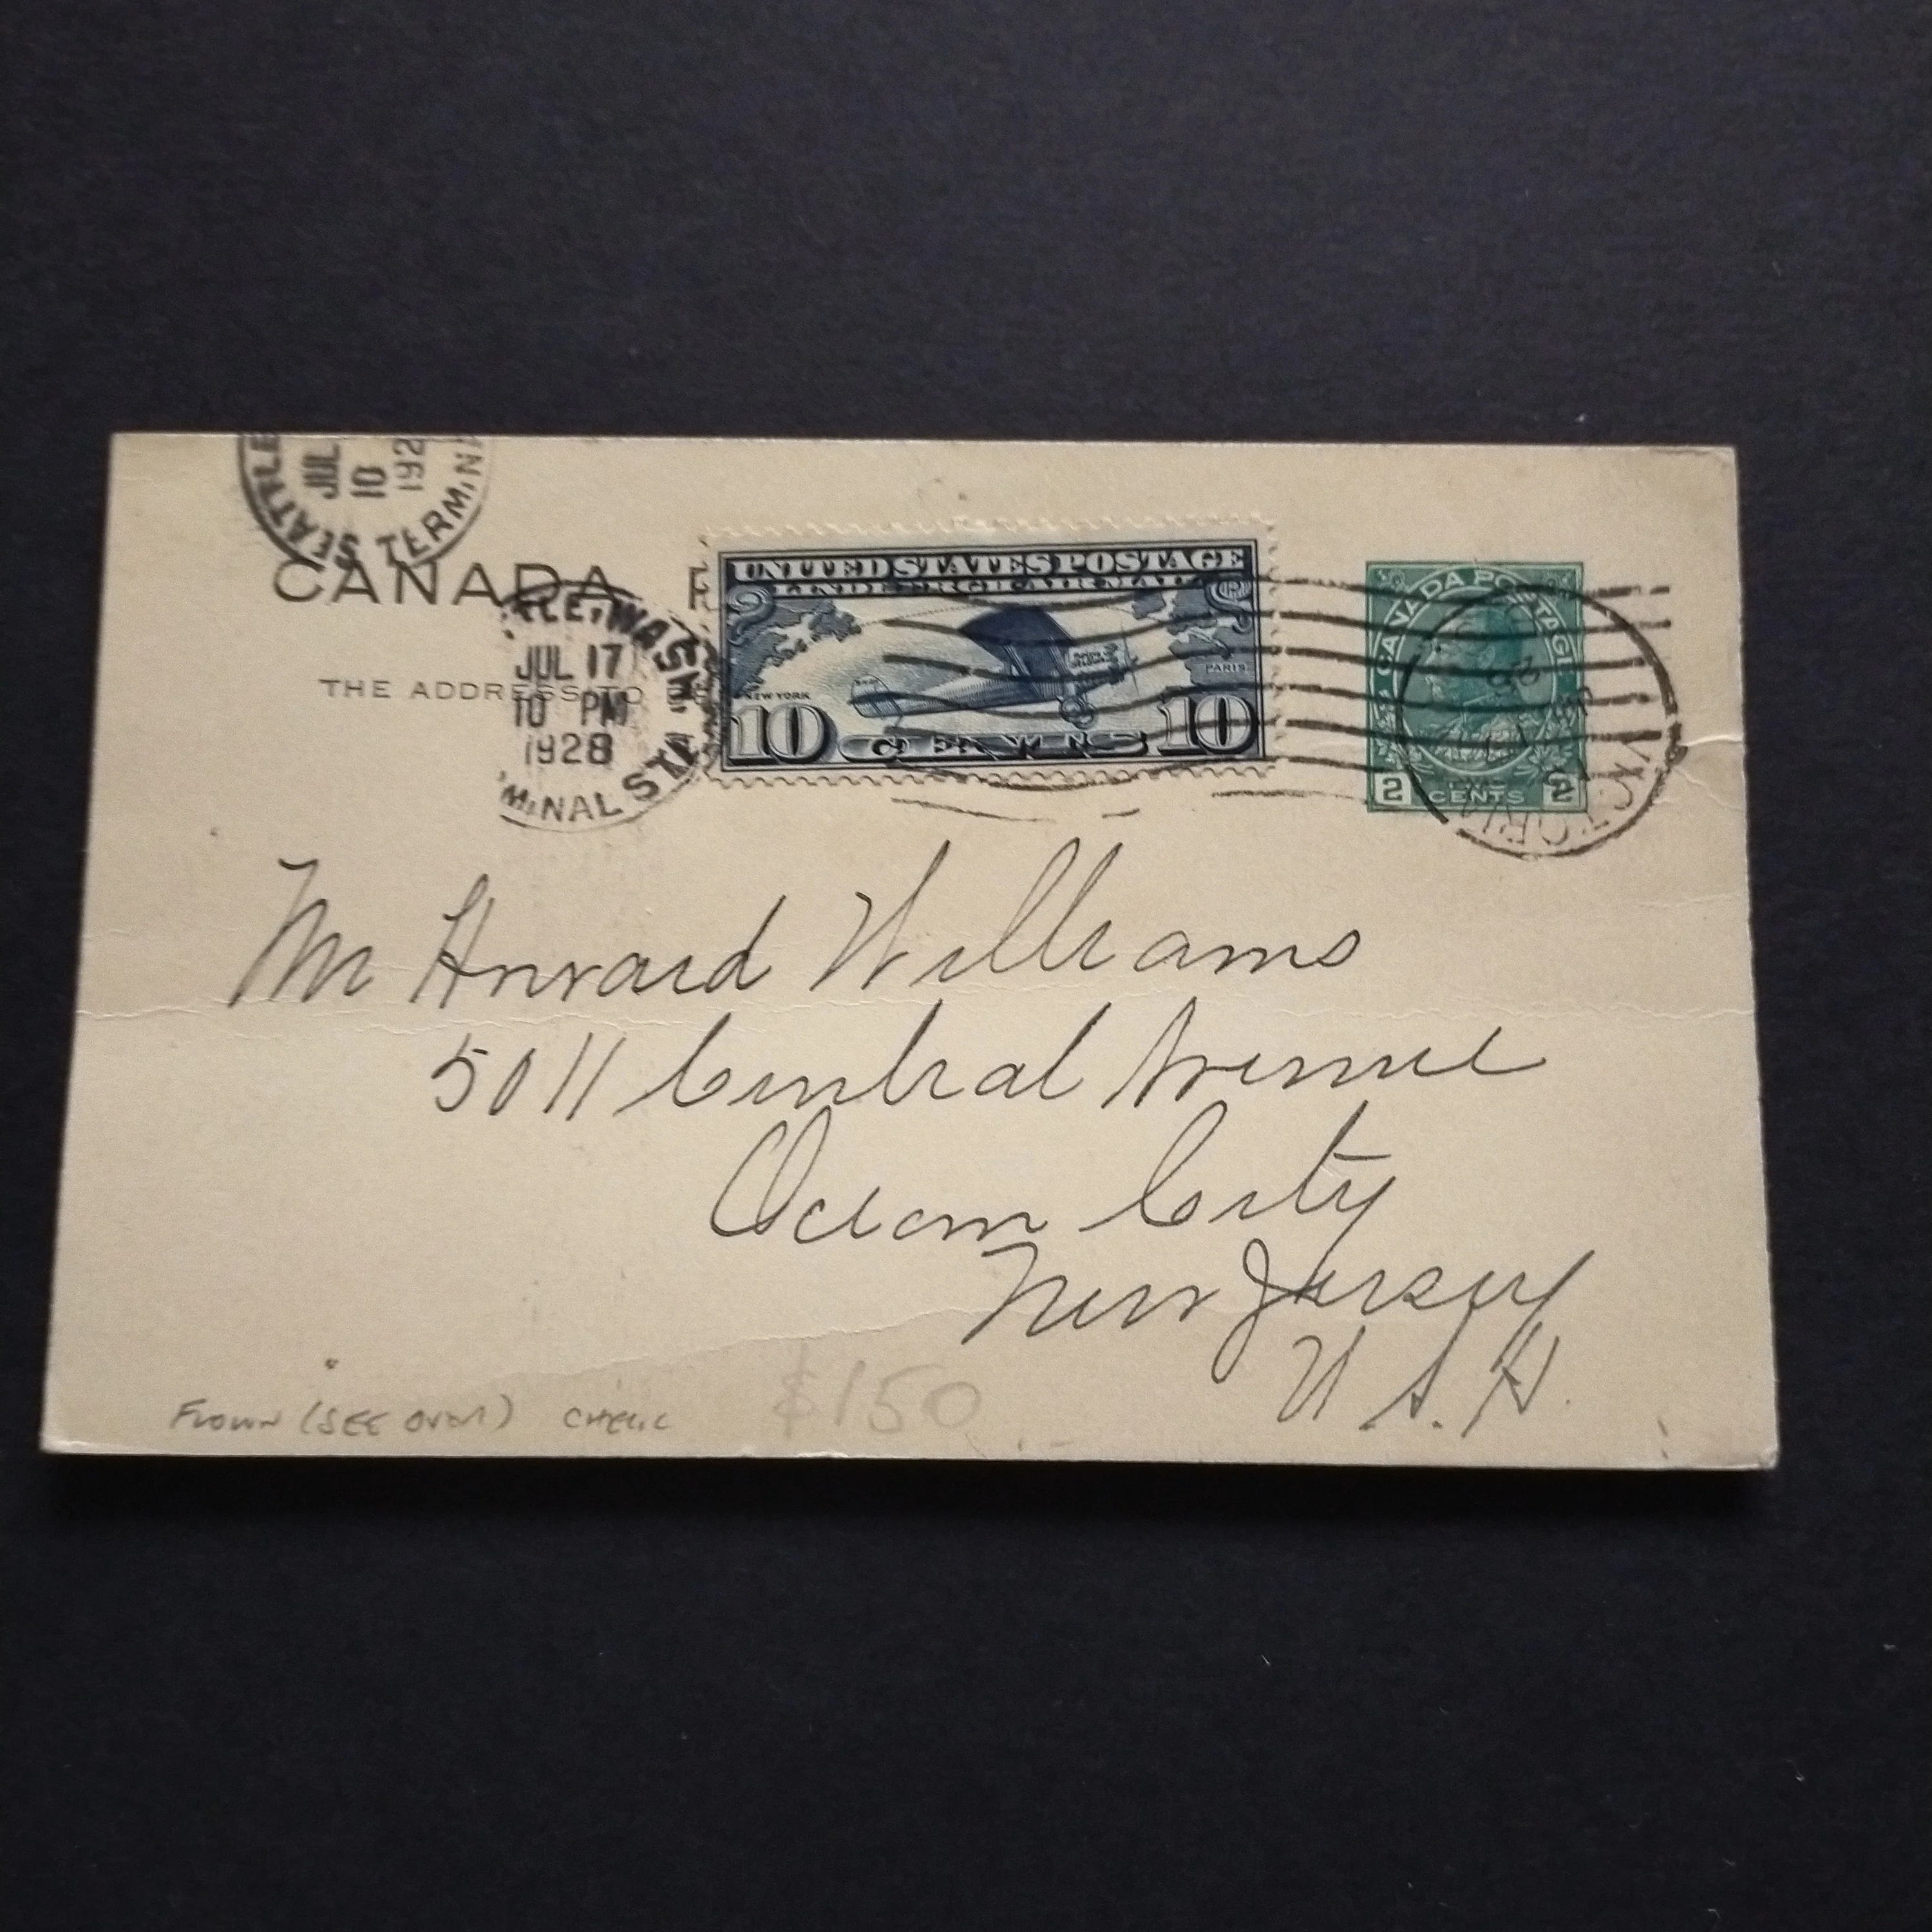 SEATTLE
JUL
10
192
TERMINA
CANADA P
TLE, WASH.
JUL 17
10 PM
1928
MINAL STA.
THE ADDRESS TO BE
UNITED STATES POSTAGE
LINDBERGH AIR MAIL
NEW YORK
PARIS
10 CENTS 10
CANADA POSTAGE
2 CENTS 2
VICTORIA
Mr Howard Williams
5011 Central Avenue
Ocean City
New Jersey
U.S.A.
FLOWN (SEE OVER)
$150